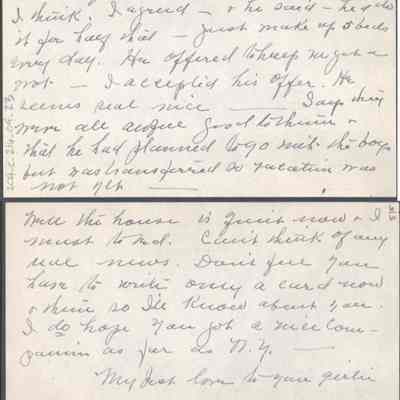 think I agreed – & he said – he'd do
it for half that – just make up 5 beds
every day. He offered to help me get a
– I accepted his offer. He
seems real nice — Says they
were all good to them &
that he had planned to go with the boys
but was transferred so vacation was
not yet —
Well the house is quiet now & I
must to bed. Can't think of any
real news. Don't feel you
have to write only a card now
& then so I'll know about you.
I do hope you got a nice com-
panion as far as N.Y. —
My best love to you girlie